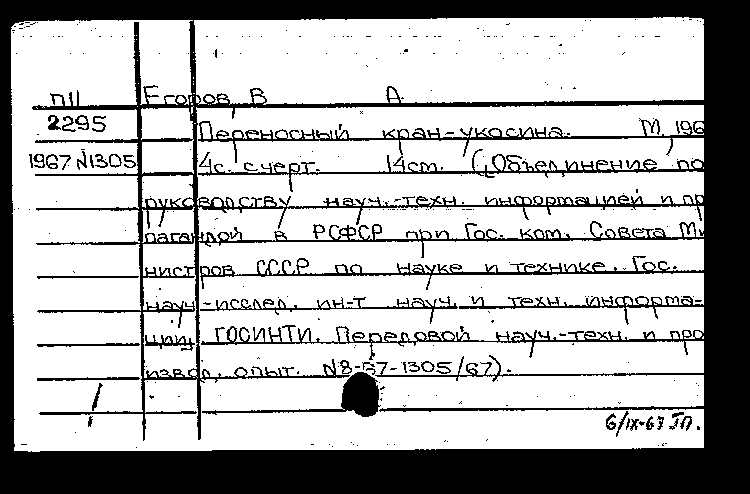 П11 Егоров, В А.
2295 Переносный кран-укосина. М, 196
1967 N1305 4с. с черт. 14см. (Объединение по
руководству науч.-техн. информацией и пр
пагандой в РСФСР при Гос. ком. Совета Ми
нистров СССР по науке и технике. Гос.
науч-исслед. ин-т науч. и техн. информа-
ции ГОСИНТИ. Передовой науч.-техн. и про
извод. опыт. N8-67-1305/67).
6/IX-67 ГП.